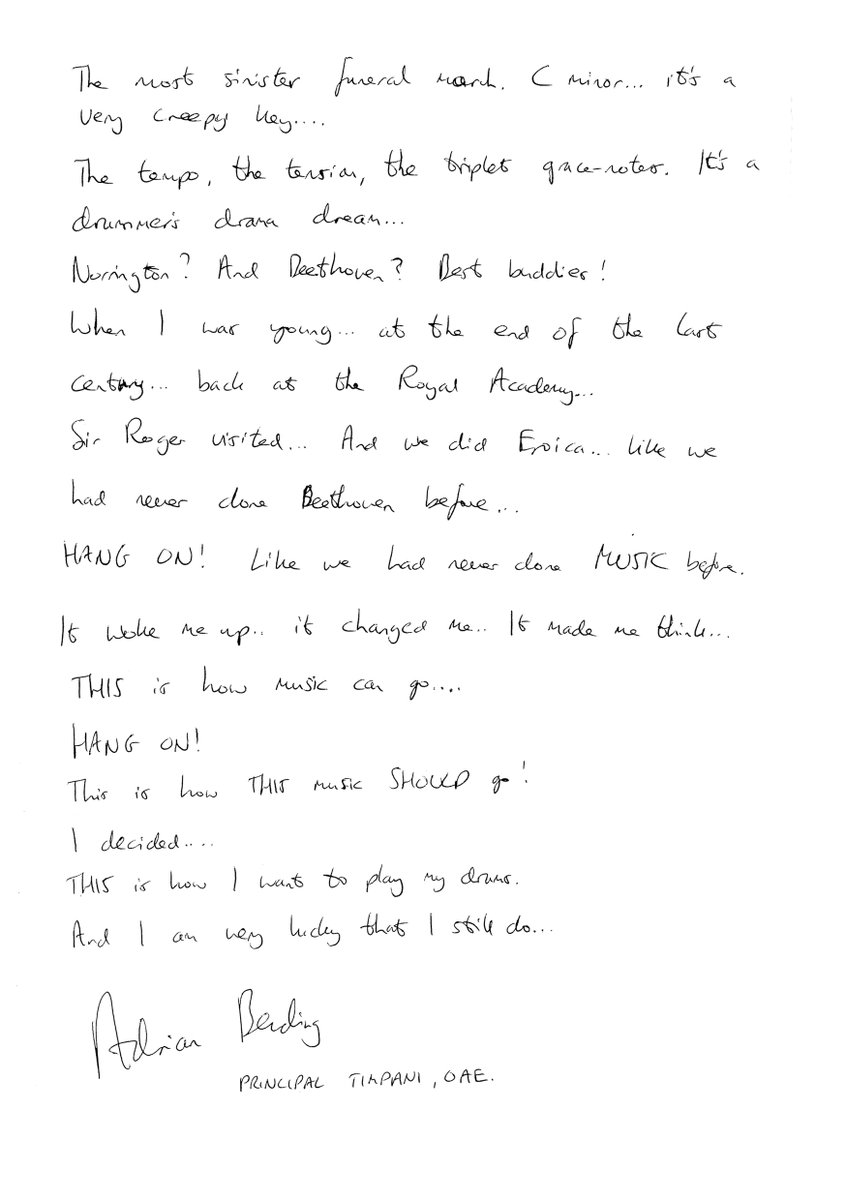 The most sinister funeral march. C minor... it's a
very creepy key....
The tempo, the tension, the triplet grace-notes. It's a
drummer's drama dream...
Norrington? And Beethoven? Best buddies!
When I was young... at the end of the last
century... back at the Royal Academy...
Sir Roger visited... And we did Eroica... like we
had never done Beethoven before...
HANG ON! Like we had never done MUSIC before.
It woke me up.. it changed me.. It made me think...
THIS is how music can go....
HANG ON!
This is how THIS music SHOULD go!
I decided....
THIS is how I want to play my drums.
And I am very lucky that I still do...
Adrian Bending
PRINCIPAL TIMPANI, OAE.